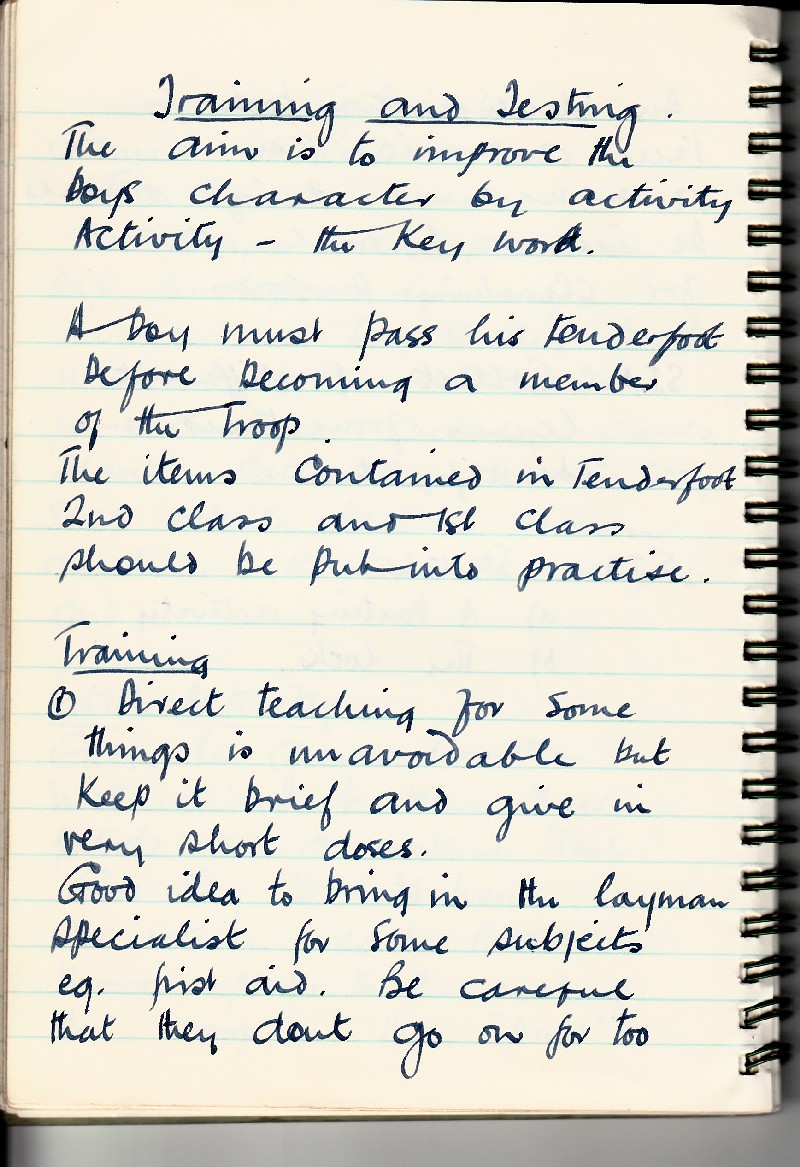 Training and Testing.
The aim is to improve the
boys character by activity
Activity - the key word.
A boy must pass his tenderfoot
before becoming a member
of the Troop.
The items contained in Tenderfoot
2nd class and 1st class
should be put into practise.
Training
① Direct teaching for some
things is unavoidable but
keep it brief and give in
very short doses.
Good idea to bring in the layman
specialist for some subjects
eg. first aid. Be careful
that they dont go on for too